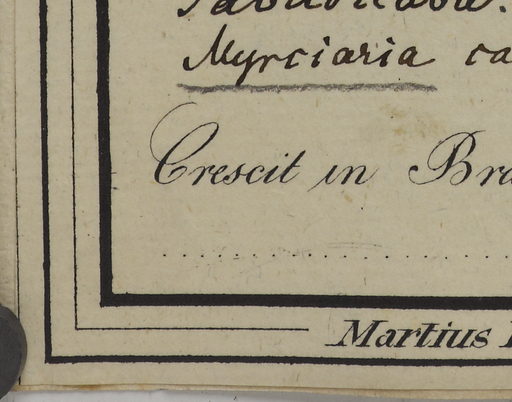 Myrciaria ca
Crescit in Bra
Martius